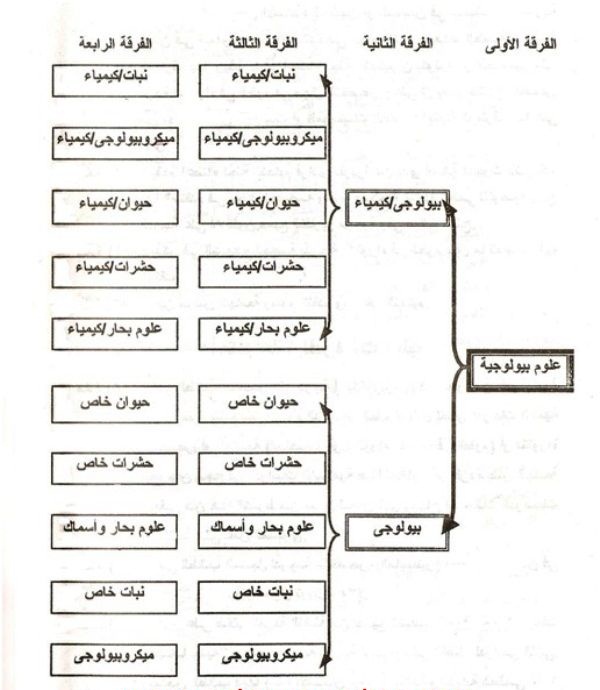 الفرقة الأولى الفرقة الثانية الفرقة الثالثة الفرقة الرابعة
نبات/كيمياء نبات/كيمياء
ميكروبيولوجى/كيمياء ميكروبيولوجى/كيمياء
بيولوجى/كيمياء حيوان/كيمياء حيوان/كيمياء
حشرات/كيمياء حشرات/كيمياء
علوم بحار/كيمياء علوم بحار/كيمياء
علوم بيولوجية
حيوان خاص حيوان خاص
حشرات خاص حشرات خاص
بيولوجى علوم بحار وأسماك علوم بحار وأسماك
نبات خاص نبات خاص
ميكروبيولوجى ميكروبيولوجى